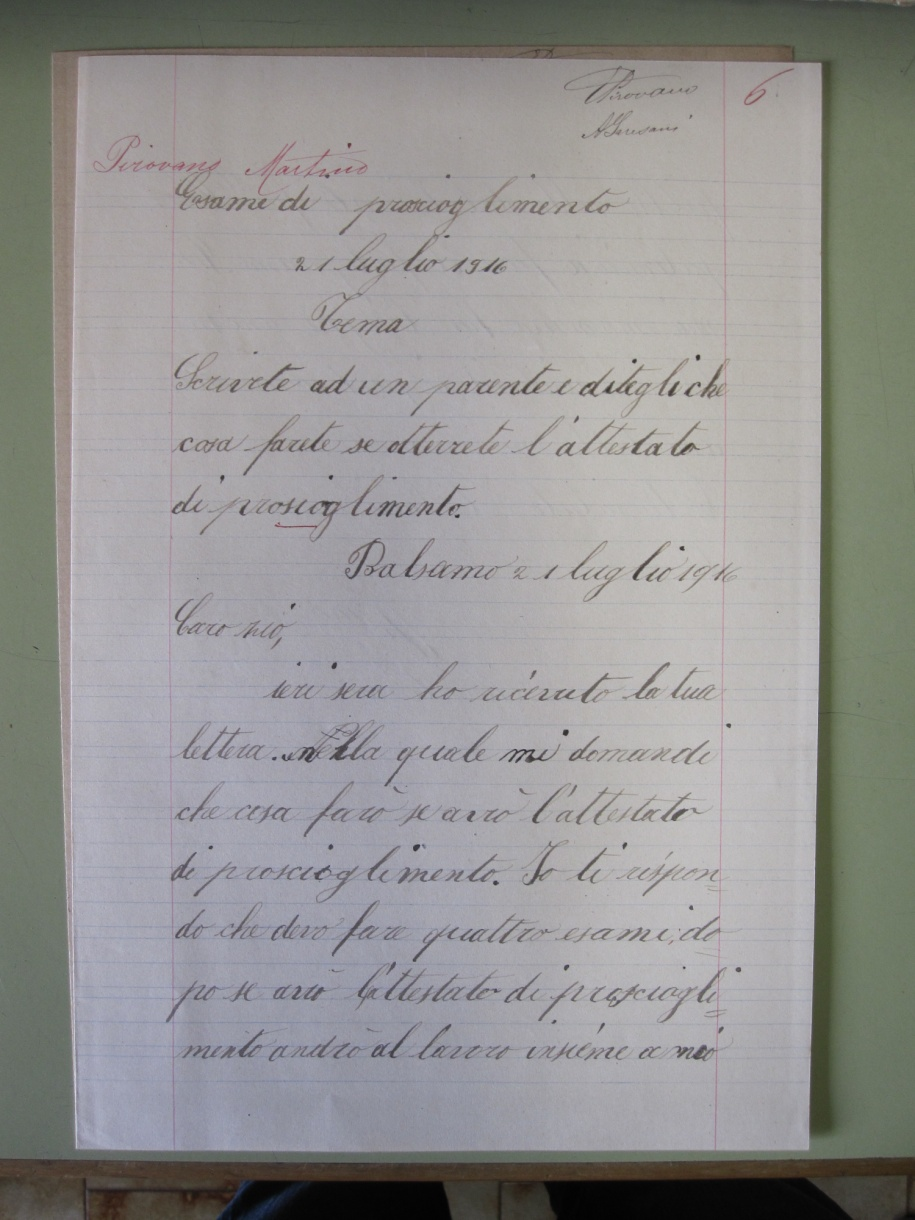 Pirovano 6
Pirovano Martino
Esame di proscioglimento
21 luglio 1916
Tema
Scrivete ad un parente e ditegli che
cosa farete se otterrete l'attestato
di prosioglimento.
Balsamo 21 luglio 1916
Caro zio,
ieri sera ho ricevuto la tua
lettera. nella quale mi domandi
che cosa farò se avrò l'attestato
di proscioglimento. Io ti rispon=
do che devo fare quattro esami; do
po se avrò l'attestato di prosciogli=
mento andrò al lavoro insieme a mio